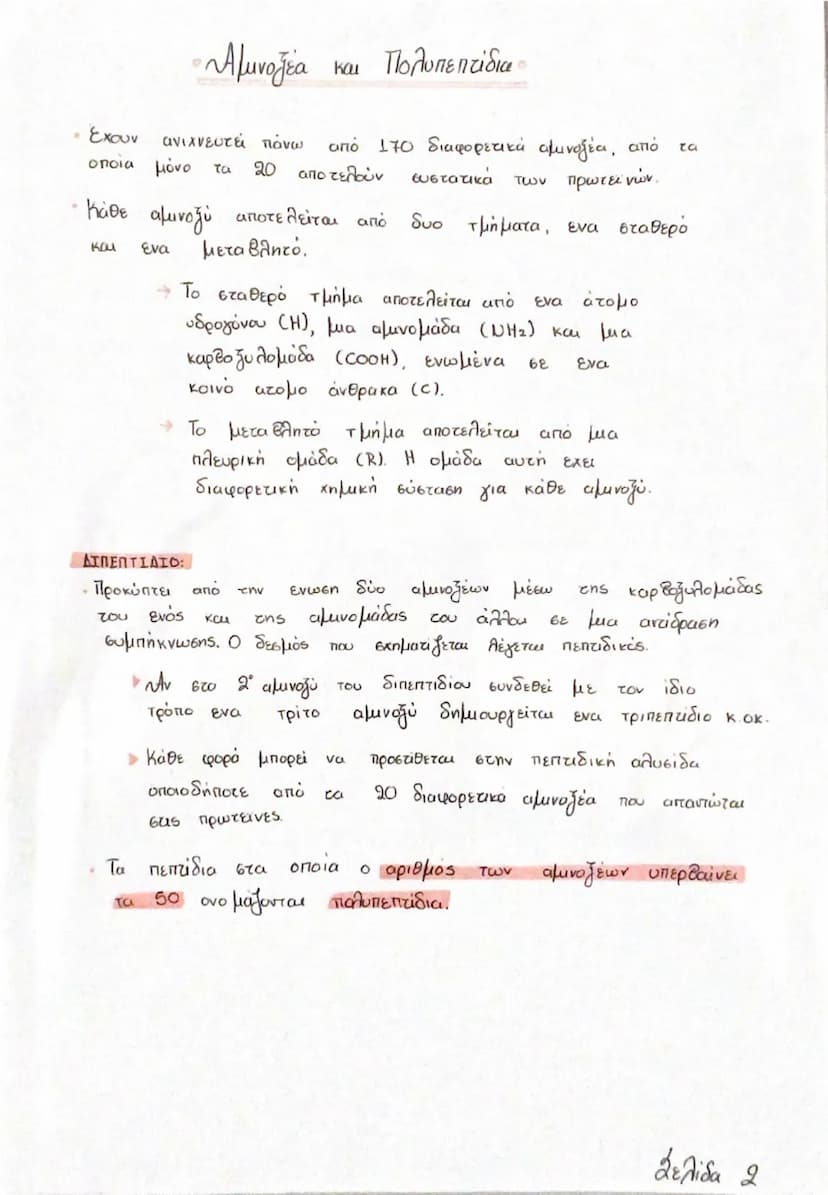 Αμινοξέα και Πολυπεπτίδια
• Έχουν ανιχνευτεί πάνω από 170 διαφορετικά αμινοξέα, από τα
οποία μόνο τα 20 αποτελούν συστατικά των πρωτεϊνών.
• Κάθε αμινοξύ αποτελείται από δυο τμήματα, ενα σταθερό
και ενα μεταβλητό.
→ Το σταθερό τμήμα αποτελείται από ενα άτομο
υδρογόνου (H), μια αμινομάδα (NH2) και μια
καρβοξυλομάδα (COOH), ενωμένα σε ενα
κοινό ατομο άνθρακα (C).
→ Το μεταβλητό τμήμα αποτελείται από μια
πλευρική ομάδα (R). Η ομάδα αυτή εχει
διαφορετική χημική σύσταση για κάθε αμινοξύ.
ΔΙΠΕΠΤΙΔΙΟ:
• Προκύπτει από την ενωση δύο αμινοξέων μέσω της καρβοξυλομάδας
του ενός και της αμινομάδας του άλλου σε μια αντίδραση
συμπήκνωσης. Ο δεσμός που σχηματίζεται λέγεται πεπτιδικός.
Αν στο 2° αμινοξύ του διπεπτιδίου συνδεθεί με τον ίδιο
τρόπο ενα τρίτο αμινοξύ δημιουργείται ενα τριπεπτίδιο κ.οκ.
Κάθε φορά μπορεί να προστίθεται στην πεπτιδική αλυσίδα
οποιοδήποτε από τα 20 διαφορετικά αμινοξέα που απαντώται
στις πρωτεινες.
• Τα πεπτίδια στα οποία ο αριθμός των αμινοξέων υπερβαίνει
τα 50 ονομάζονται πολυπεπτίδια.
Σελίδα 2